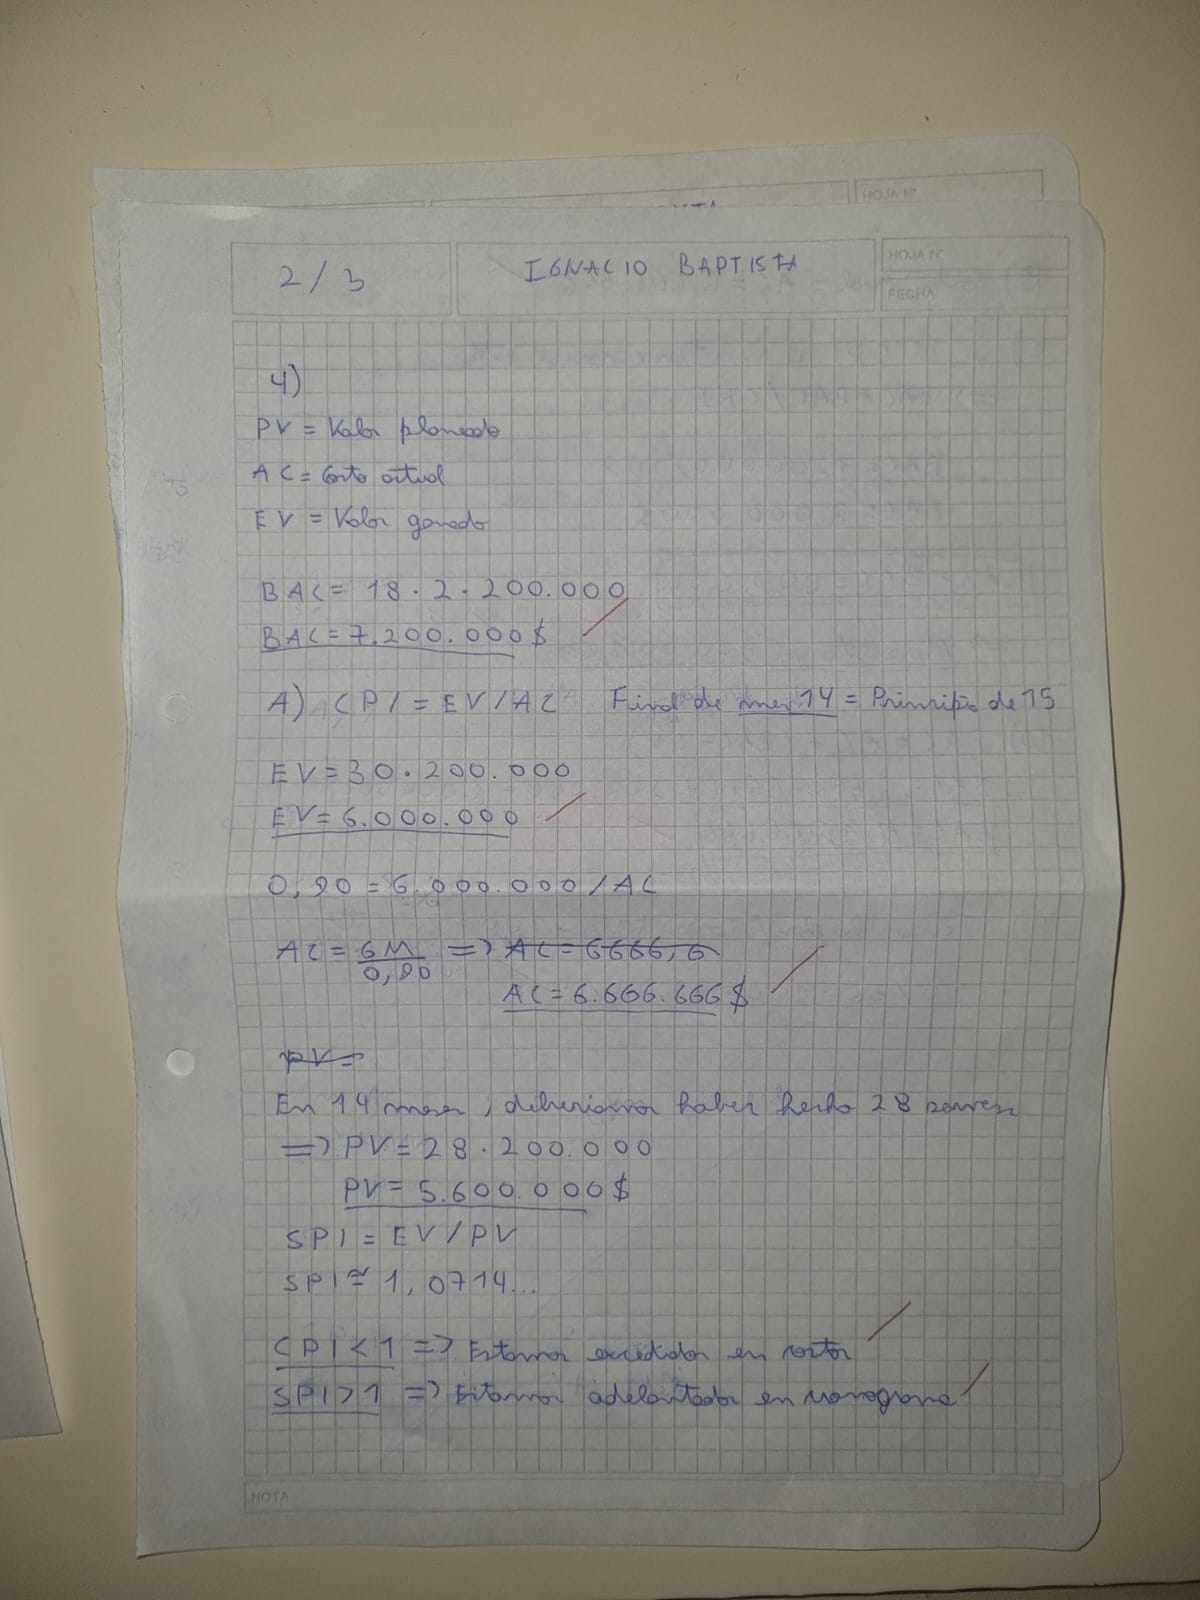 HOJA N°
2/3
IGNACIO BAPTISTA
HOJA N°
FECHA
4)
PV = Valor planeado
AC = Costo actual
EV = Valor ganado
BAC = 18 · 2 · 200.000
BAC = 7.200.000$
A) CPI = EV/AC Final de mes 14 = Principio de 15
EV = 30 · 200.000
EV = 6.000.000
0,90 = 6.000.000/AC
AC = 6M/0,90 => AC = 6666,6
AC = 6.666.666$
PV =
En 14 meses, deberiamos haber hecho 28
=> PV = 28 · 200.000
PV = 5.600.000$
SPI = EV/PV
SPI ≅ 1,0714...
CPI < 1 => Estamos excedidos en costos
SPI > 1 => Estamos adelantados en cronograma
NOTA